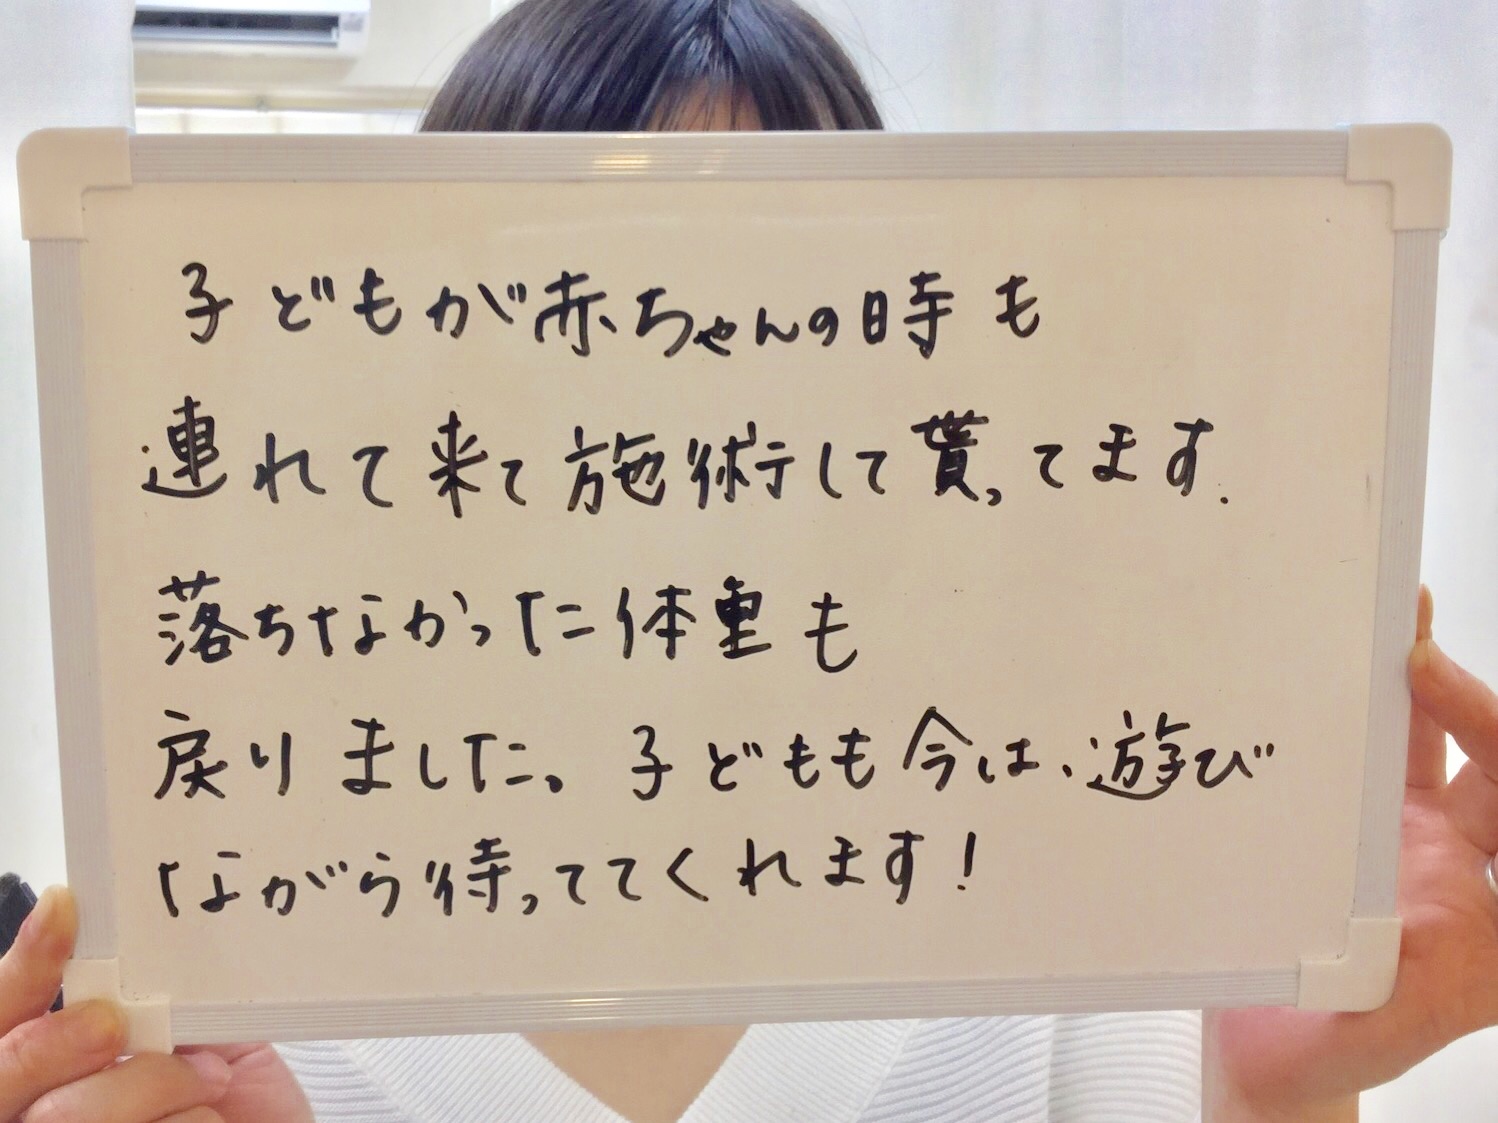 子どもが赤ちゃんの時も
連れて来て施術して貰ってます.
落ちなかった体重も
戻りました。子どもも今は、遊び
ながら待っててくれます!